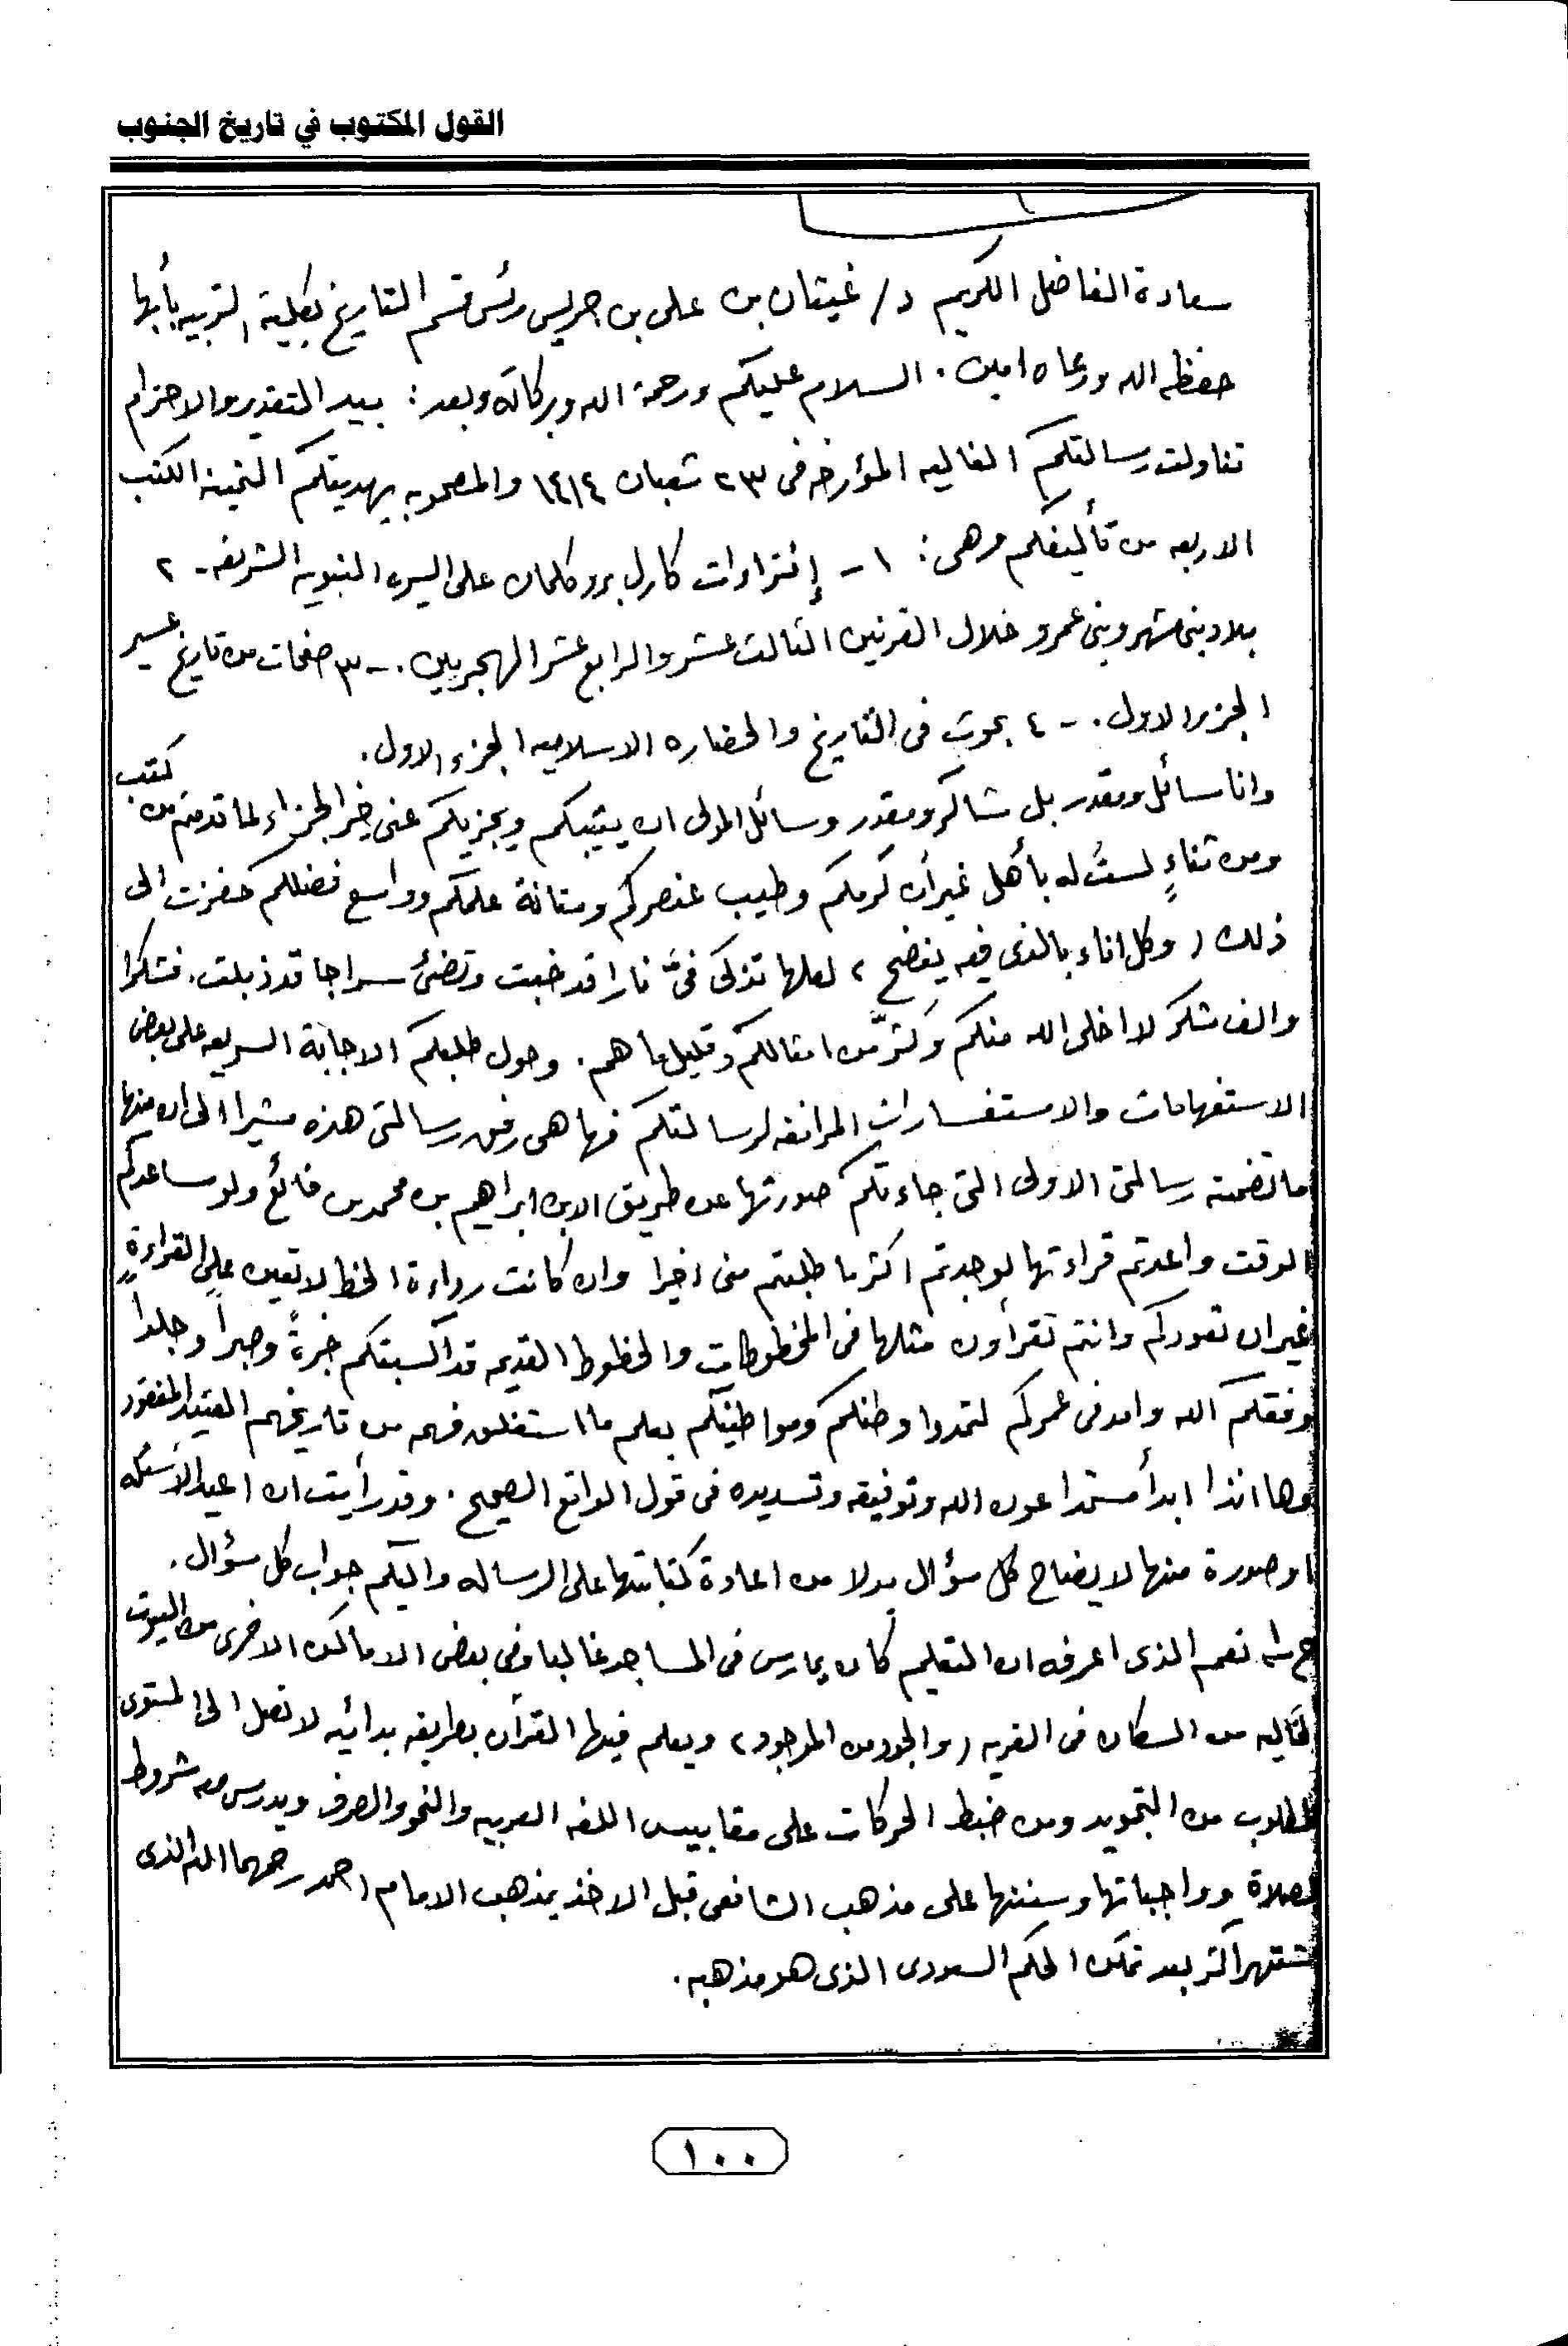 القول المكتوب في تاريخ الجنوب
سعادة الفاضل الكريم د/ غيثان بن على بن جريس رئيس قسم التاريخ بكلية التربيه بأبها
حفظه الله ورعاه امين. السلام عليكم ورحمة الله وبركاته وبعد: بيد التقدير والاحترام
تناولت رسالتكم الغاليه المؤرخه فى ٢٣ شعبان ١٤١٤ والمصحوبه بهديتكم الثمينه الكتب
الاربعه من تأليفكم وهى: ١- إفتراءات كارل بروكلمان على السيره النبويه الشريفه- ٢
بلاد بنى شهر وبنى عمرو خلال القرنين الثالث عشر والرابع عشر الهجريين. -٣ صفحات من تاريخ عسير
الجزء الاول. - ٤ بحوث فى التاريخ والحضاره الاسلاميه الجزء الاول.
وانا سائل ومقدر بل شاكر ومقدر وسائل المولى ان يثيبكم ويجزيكم عنى خير الجزاء لما قدمتم من كتب
ومن ثناءٍ لستُ له بأهل غير أن كرمكم وطيب عنصركم ومتانة علمكم وواسع فضلكم حفزت الى
ذلك (وكل اناء بالذى فيه ينضح) لعلها تذكى فىَّ نارا قد خبت وتضئ سراجا قد ذبلت. فشكرا
والف شكر لا اخلى الله منكم وكثَّر من امثالكم وقليل ما هم. وحول طلبكم الاجابة السريعه على بعض
الاستفهامات والاستفسارات المرافقه لرسالتكم فها هى رفق رسالتى هذه مشيرا الى ان منها
ما تضمنته رسالتى الاولى التى جاءتكم صورتها عن طريق الابن ابراهيم بن محمد بن فائع ولو ساعدكم
الوقت واعدتم قراءتها لوجدتم اكثر ما طلبتم منى اخيرا وان كانت رداءة الخط لا تعين على القراءةِ
غير ان تعودكم وانتم تقرأون مثلها فى المخطوطات والخطوط القديمه قد اكسبتكم خبرةً وصبراً وجلداً
وفقكم الله وامد فى عمركم لتمدوا وطنكم ومواطنيكم بعلم ما استغلق فهمه من تاريخهم العتيد المفقود
وها انذا ابدأ مستمدا عون الله وتوفيقه وتسديده فى قول الواقع الصحيح. وقد رأيت ان اعيد الأسئله
او صورة منها لايضاح كل سؤال بدلا من اعادة كتابتها على الرساله واليكم جواب كل سؤال.
ج١ نعم الذى اعرفه ان التعليم كان يمارس فى المساجد غالبا وفى بعض الاماكن الاخرى من البيوت
الخاليه من السكان فى القريه (والجود من الموجود) ويعلم فيها القرآن بطريقه بدائيه لا تصل الى المستوى
المطلوب من التجويد ومن ضبط الحركات على مقاييس اللغه العربيه والنحو والصرف ويدرس معه شروط
الصلاة وواجباتها وسننها على مذهب الشافعى قبل الاخذ بمذهب الامام احمد رحمهما الله الذى
اشتهر اكثر بعد تمكن الحكم السعودى الذى هو مذهبه.
١٠٠